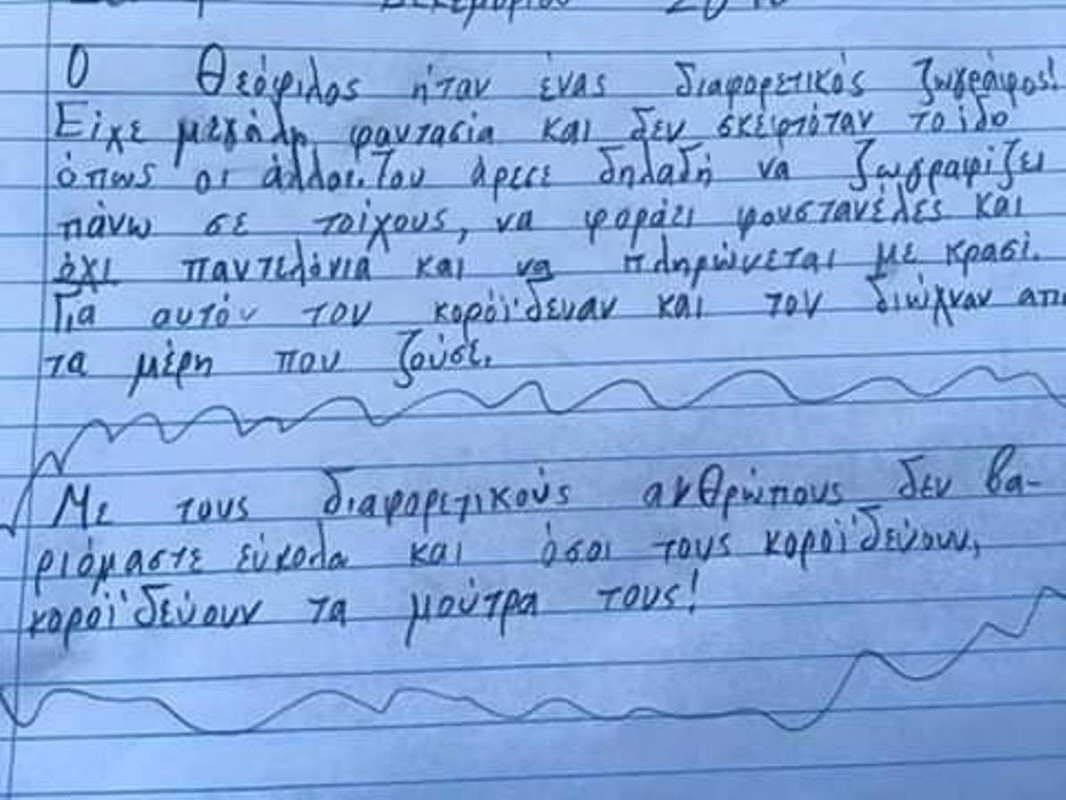 Δεκεμβρίου
Ο Θεόφιλος ήταν ένας διαφορετικός ζωγράφος!
Είχε μεγάλη φαντασία και δεν σκεφτόταν το ίδο
όπως οι άλλοι. Του άρεσε δηλαδή να ζωγραφίζει
πάνω σε τοίχους, να φοράει φουστανέλες και
όχι παντελόνια και να πληρώνεται με κρασί.
Για αυτόν τον κορόϊδευαν και τον διώχναν
τα μέρη που ζούσε.
Με τους διαφορετικούς ανθρώπους δεν βα-
ριόμαστε εύκολα και όσοι τους κοροϊδεύουν,
κοροϊδεύουν τα μούτρα τους!